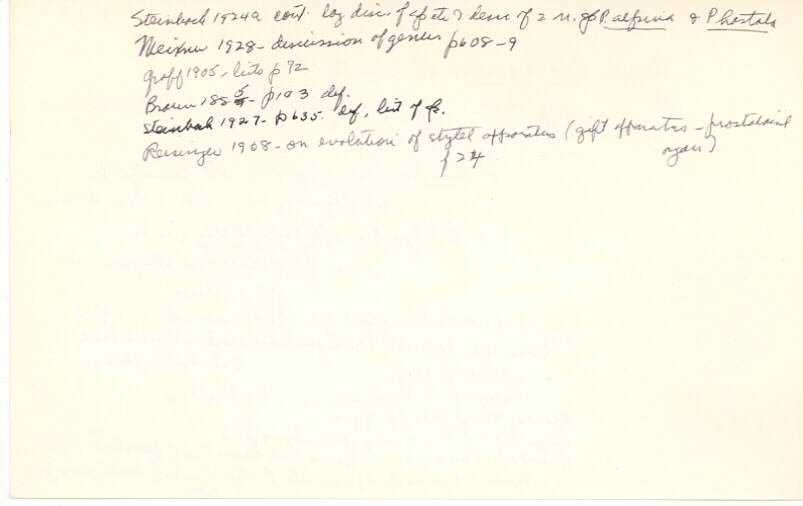 Steinbock 1924a cont. log disc. of sp etc & descr of 2 n. sp P. alpina & P. hastata
Meixner 1928 - discussion of genus p608-9
Graff 1905 - lists p 92
Braun 1885 - p193 def.
Steinbock 1927 - p635. def, list of sp.
Reisinger 1908 - on evolution of stylet apparatus (gift apparatus - prostatoid
p 24 organ)